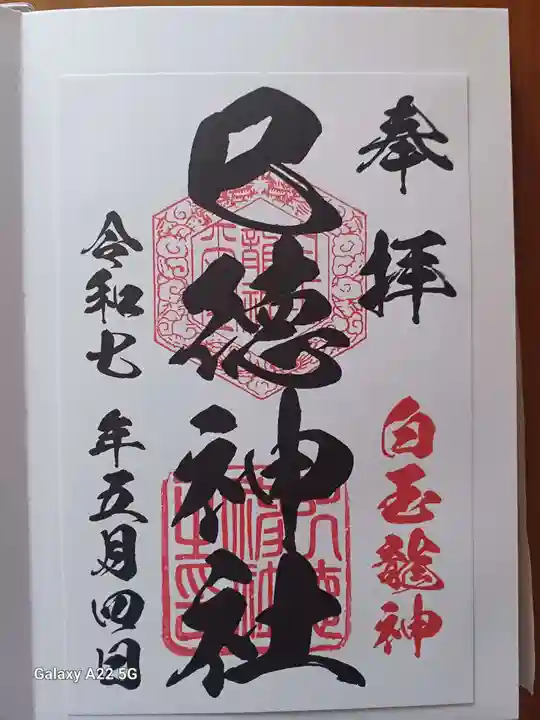 奉拝
白玉龍神
巳徳神社
令和七年五月四日
Galaxy A22 5G